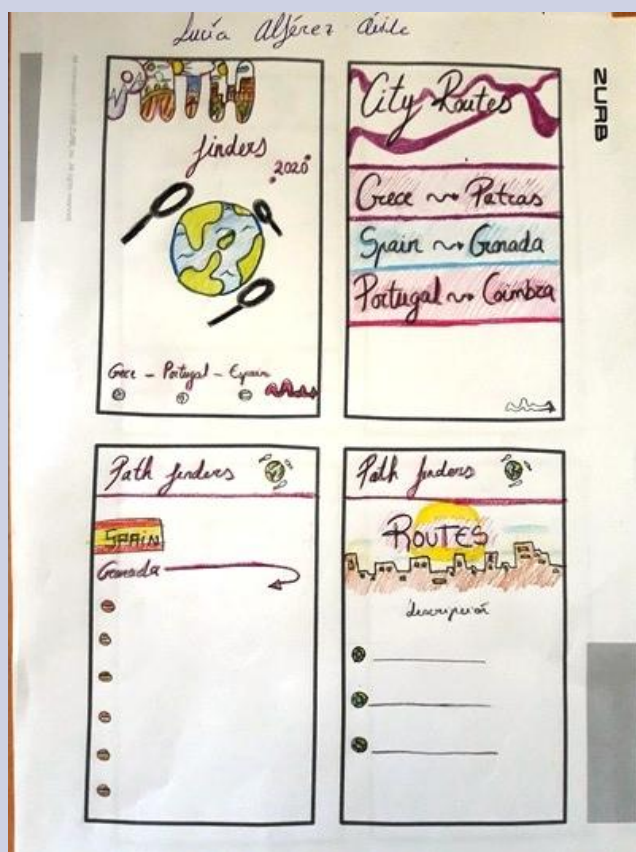 Lucía Alférez
PATH
finders
2020
Grece - Portugal - Espain
City Routes
Grece Patras
Spain Granada
Portugal Coimbra
Path finders
SPAIN
Granada
Path finders
ROUTES
descripción
ZURB